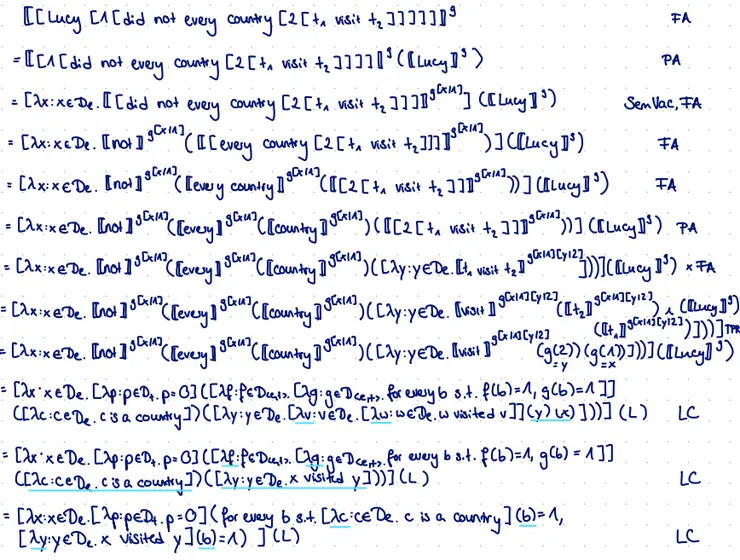 ⟦[Lucy [1[did not every country [2[t₁ visit t₂]]]]]⟧ᵍ FA
= ⟦[1[did not every country [2[t₁ visit t₂]]]]⟧ᵍ(⟦Lucy⟧ᵍ) PA
= [λx:x∈Dₑ. ⟦[did not every country [2[t₁ visit t₂]]]⟧ᵍ[x/1]] (⟦Lucy⟧ᵍ) SemVac, FA
= [λx:x∈Dₑ. ⟦not⟧ᵍ[x/1](⟦[every country [2[t₁ visit t₂]]]⟧ᵍ[x/1])](⟦Lucy⟧ᵍ) FA
= [λx:x∈Dₑ. ⟦not⟧ᵍ[x/1](⟦every country⟧ᵍ[x/1](⟦[2[t₁ visit t₂]]⟧ᵍ[x/1]))](⟦Lucy⟧ᵍ) FA
= [λx:x∈Dₑ. ⟦not⟧ᵍ[x/1](⟦every⟧ᵍ[x/1](⟦country⟧ᵍ[x/1])(⟦[2[t₁ visit t₂]]⟧ᵍ[x/1]))](⟦Lucy⟧ᵍ) PA
= [λx:x∈Dₑ. ⟦not⟧ᵍ[x/1](⟦every⟧ᵍ[x/1](⟦country⟧ᵍ[x/1])([λy:y∈Dₑ.⟦t₁ visit t₂⟧ᵍ[x/1][y/2]]))](⟦Lucy⟧ᵍ) ×FA
= [λx:x∈Dₑ. ⟦not⟧ᵍ[x/1](⟦every⟧ᵍ[x/1](⟦country⟧ᵍ[x/1])([λy:y∈Dₑ. ⟦visit⟧ᵍ[x/1][y/2](⟦t₂⟧ᵍ[x/1][y/2]) (⟦Lucy⟧ᵍ)
(⟦t₁⟧ᵍ[x/1][y/2])]))] TPR
= [λx:x∈Dₑ. ⟦not⟧ᵍ[x/1](⟦every⟧ᵍ[x/1](⟦country⟧ᵍ[x/1])([λy:y∈Dₑ.⟦visit⟧ᵍ[x/1][y/2](g(2))(g(1))]))](⟦Lucy⟧ᵍ)
=y =x
= [λx:x∈Dₑ.[λp:p∈Dₜ.p=0]([λf:f∈D<e,t>.[λg:g∈D<e,t>.for every b s.t. f(b)=1, g(b)=1]]
([λc:c∈Dₑ.c is a country])([λy:y∈Dₑ.[λv:v∈Dₑ.[λw:w∈Dₑ.w visited v]](y)(x)]))](L) LC
= [λx:x∈Dₑ.[λp:p∈Dₜ.p=0]([λf:f∈D<e,t>.[λg:g∈D<e,t>.for every b s.t. f(b)=1, g(b)=1]]
([λc:c∈Dₑ.c is a country])([λy:y∈Dₑ.x visited y]))](L) LC
= [λx:x∈Dₑ.[λp:p∈Dₜ.p=0](for every b s.t. [λc:c∈Dₑ. c is a country](b)=1,
[λy:y∈Dₑ.x visited y](b)=1)](L) LC